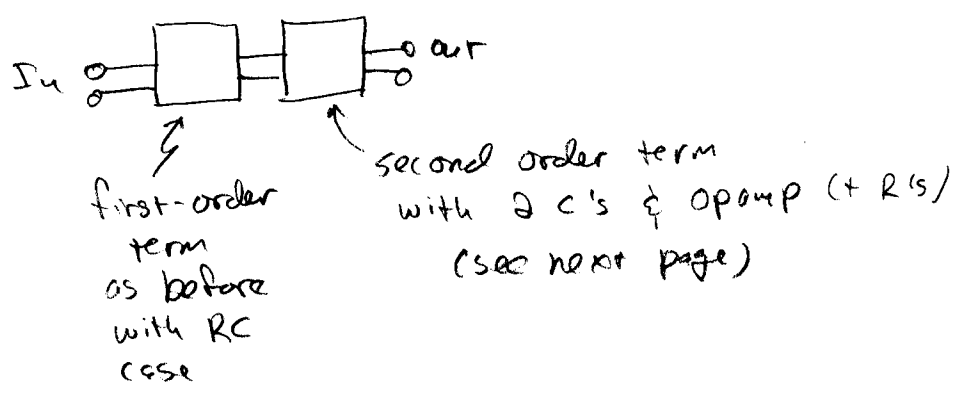 In
out
first-order
term
as before
with RC
case
second order term
with 2 C's & opamp (+ R's)
(see next page)